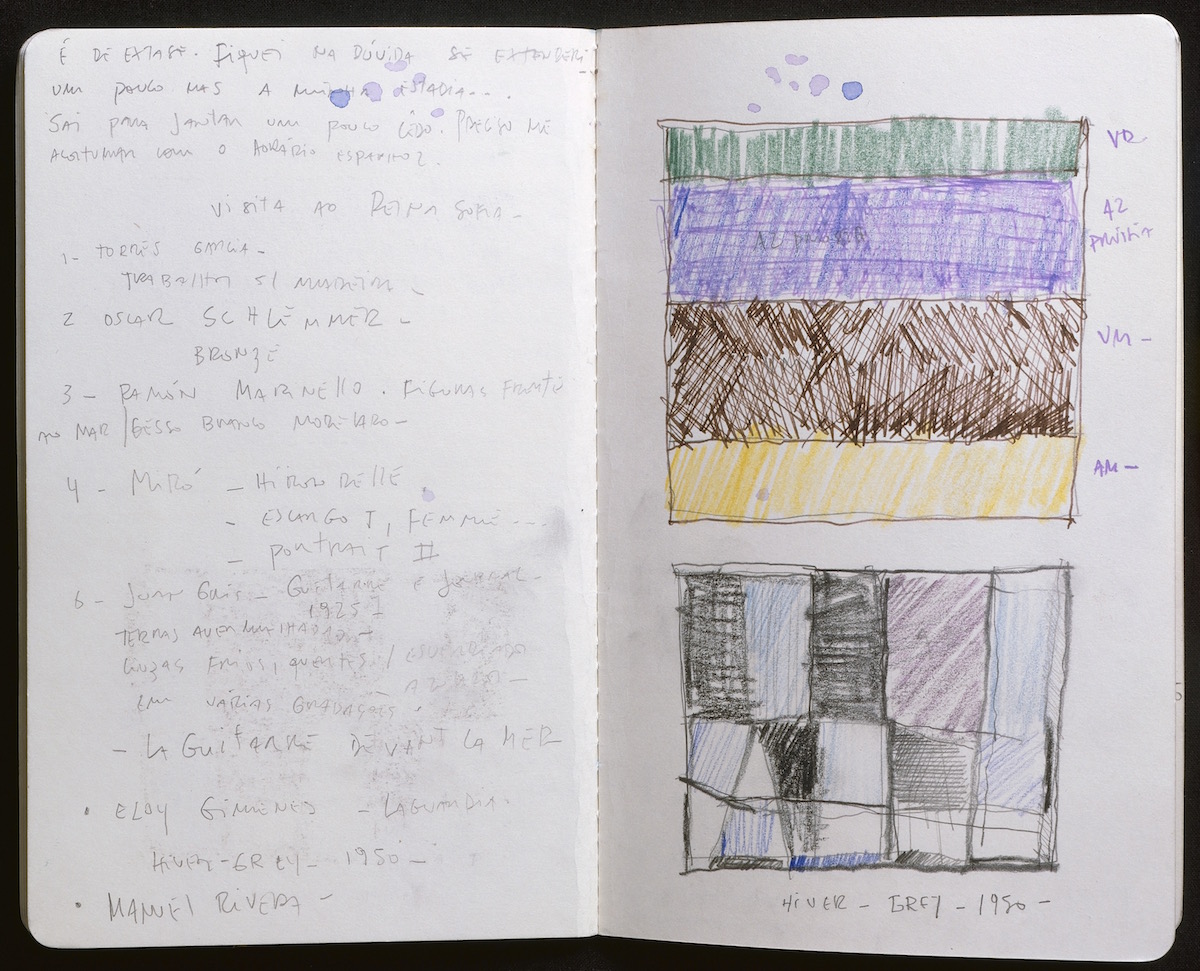 É DE EXTASE. FIQUEI NA DÚVIDA SE EXTENDERI
UM POUCO MAS A MINHA ESTADIA...
SAI PARA JANTAR UM POUCO CÊDO. PRECISO ME
ACOSTUMAR COM O HORÁRIO ESPANHOL.
VISITA AO REINA SOFIA -
1- TORRES GARCIA -
TRABALHOS S/ MADEIRA -
2 OSCAR SCHLÉMMER -
BRONZE
3 - RAMÓN MARINELLO. FIGURAS FRENTE
AO MAR / GESSO BRANCO
4 - MIRÓ - HIRONDELLE.
- ESCARGOT, FEMME ...
- PORTRAIT II
6 - JUAN GRIS - GUITARRE E JOURNAL -
1925 -
TERRAS AVERMELHADAS -
CINZAS FRIOS, QUENTES / ESVERDEADO
AZUES -
EM VÁRIAS GRADAÇÕES.
- LA GUITARRE DEVANT LA MER
• ELOY GIMENES - LAGUARDIA.
HIVER-GREY - 1950 -
• MANUEL RIVERA -
VR
AZ PRUSSIA
AZ
PRUSSIA
VM -
AM -
HIVER - GREY - 1950 -